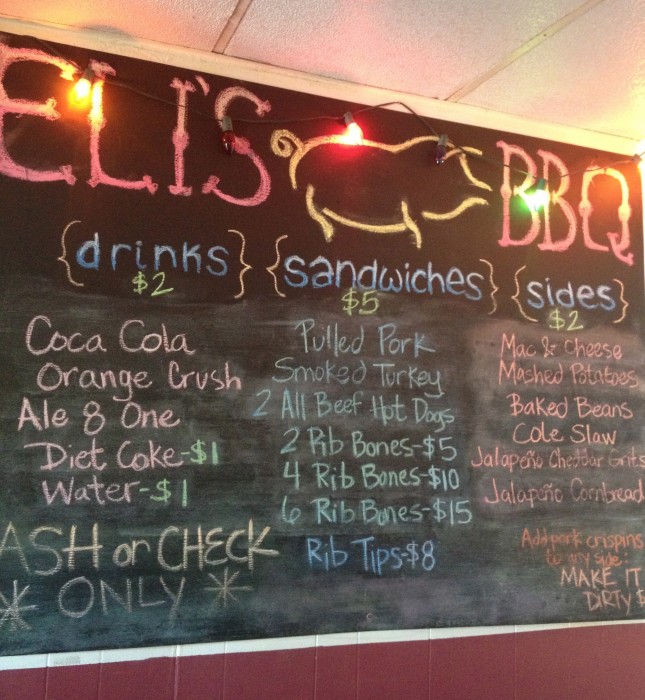 ELI'S BBQ
{drinks}
$2
Coca Cola
Orange Crush
Ale 8 One
Diet Coke-$1
Water-$1
ASH or CHECK
* ONLY *
{sandwiches}
$5
Pulled Pork
Smoked Turkey
2 All Beef Hot Dogs
2 Rib Bones-$5
4 Rib Bones-$10
6 Rib Bones-$15
Rib Tips-$8
{sides}
$2
Mac & Cheese
Mashed Potatoes
Baked Beans
Cole Slaw
Jalapeño Cheddar Grits
Jalapeño Cornbread
Add pork crispins
to any side:
MAKE IT
DIRTY $